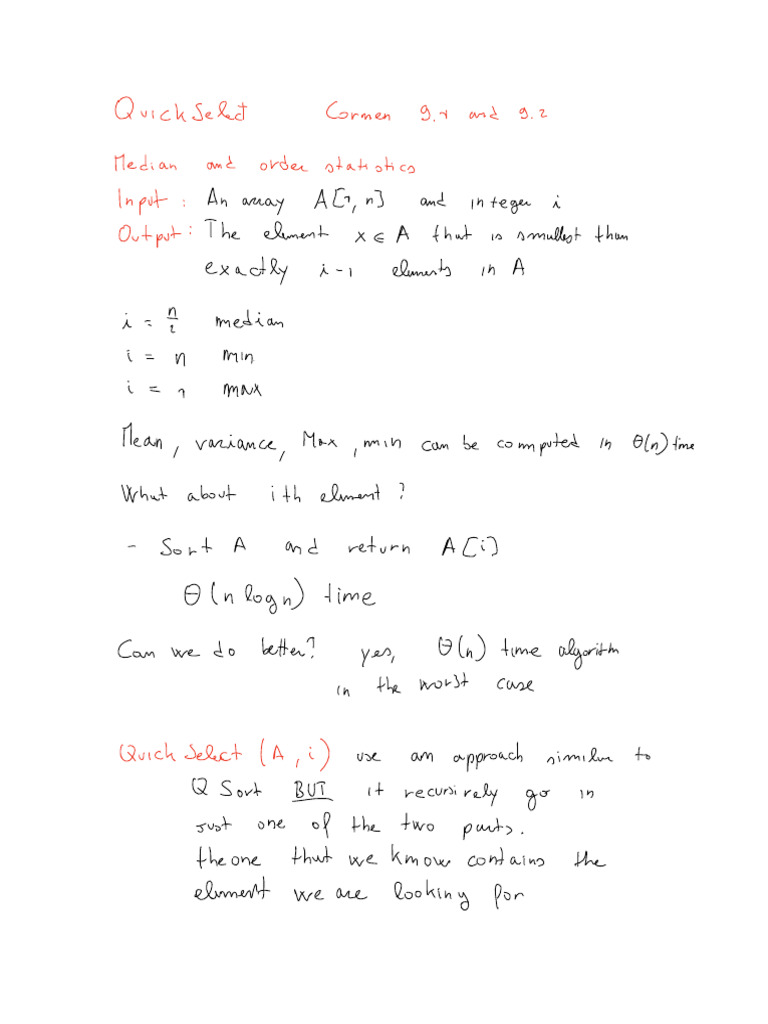 QuickSelect Cormen 9.1 and 9.2
Median and order statistics
Input: An array A[1,n] and integer i
Output: The element x ∈ A that is smallest than
exactly i-1 elements in A
i = n/2 median
i = n min
i = 1 max
Mean, variance, Max, min can be computed in Θ(n) time
What about ith element?
- Sort A and return A[i]
Θ(n log n) time
Can we do better? yes, Θ(n) time algorithm
in the worst case
QuickSelect (A, i) use an approach similar to
Q Sort BUT it recursively go in
just one of the two parts.
the one that we know contains the
element we are looking for